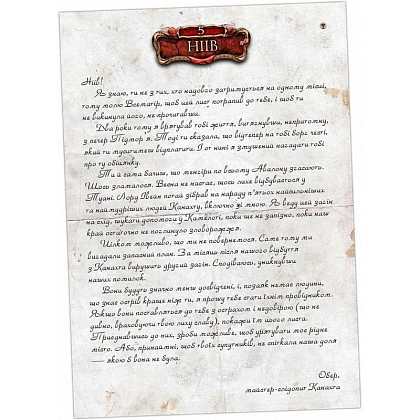 5
НІІВ
Ніів!
Я знаю, ти не з тих, хто надовго затримується на одному місці,
тому молю Всематір, щоб цей лист потрапив до тебе, і щоб ти
не викинула його, не прочитавши.
Два роки тому я врятував тобі життя, витягнувши, непритомну,
з печер Підмор'я. Тоді ти сказала, що відтепер на тобі борг честі,
який ти муситимеш відплатити. І от нині я змушений нагадати тобі
про ту обіцянку.
Ти й сама бачиш, що менгіри по всьому Авалону згасають.
Щось зламалося. Весна не настає, щось лихе відбувається у
Туані. Лорд Івейн почав зібрав на нараду п'ятьох найсильніших
та наймудріших людей Канахту, включно зі мною. Як веду цей загін
на схід, шукати допомоги у Камелоті, поки ще не запізно, поки наш
край остаточно не поглинуло зловорожжя.
Цілком можливо, що ми не повернемося. Саме тому ми
вигадали запасний план. За місяць після нашого відбуття
з Канахта вирушить другий загін. Сподіваюсь, уникнувши
наших помилок.
Вони будуть значно менш досвідчені, і, позаяк немає людини,
що знає острів краще ніж ти, я прошу тебе стати їхнім провідником.
Якщо вони поставляться до тебе з острахом і недовірою (що не
дивно, враховуючи твою лиху славу), покажи їм цього листа.
Приєднавшись до них, зроби можливе, щоб урятувати моє рідне
місто. Або, принаймні, щоб твоїх супутників, не спіткала наша доля
— якою б вона не була.
Обер,
майстер-слідопит Канахта